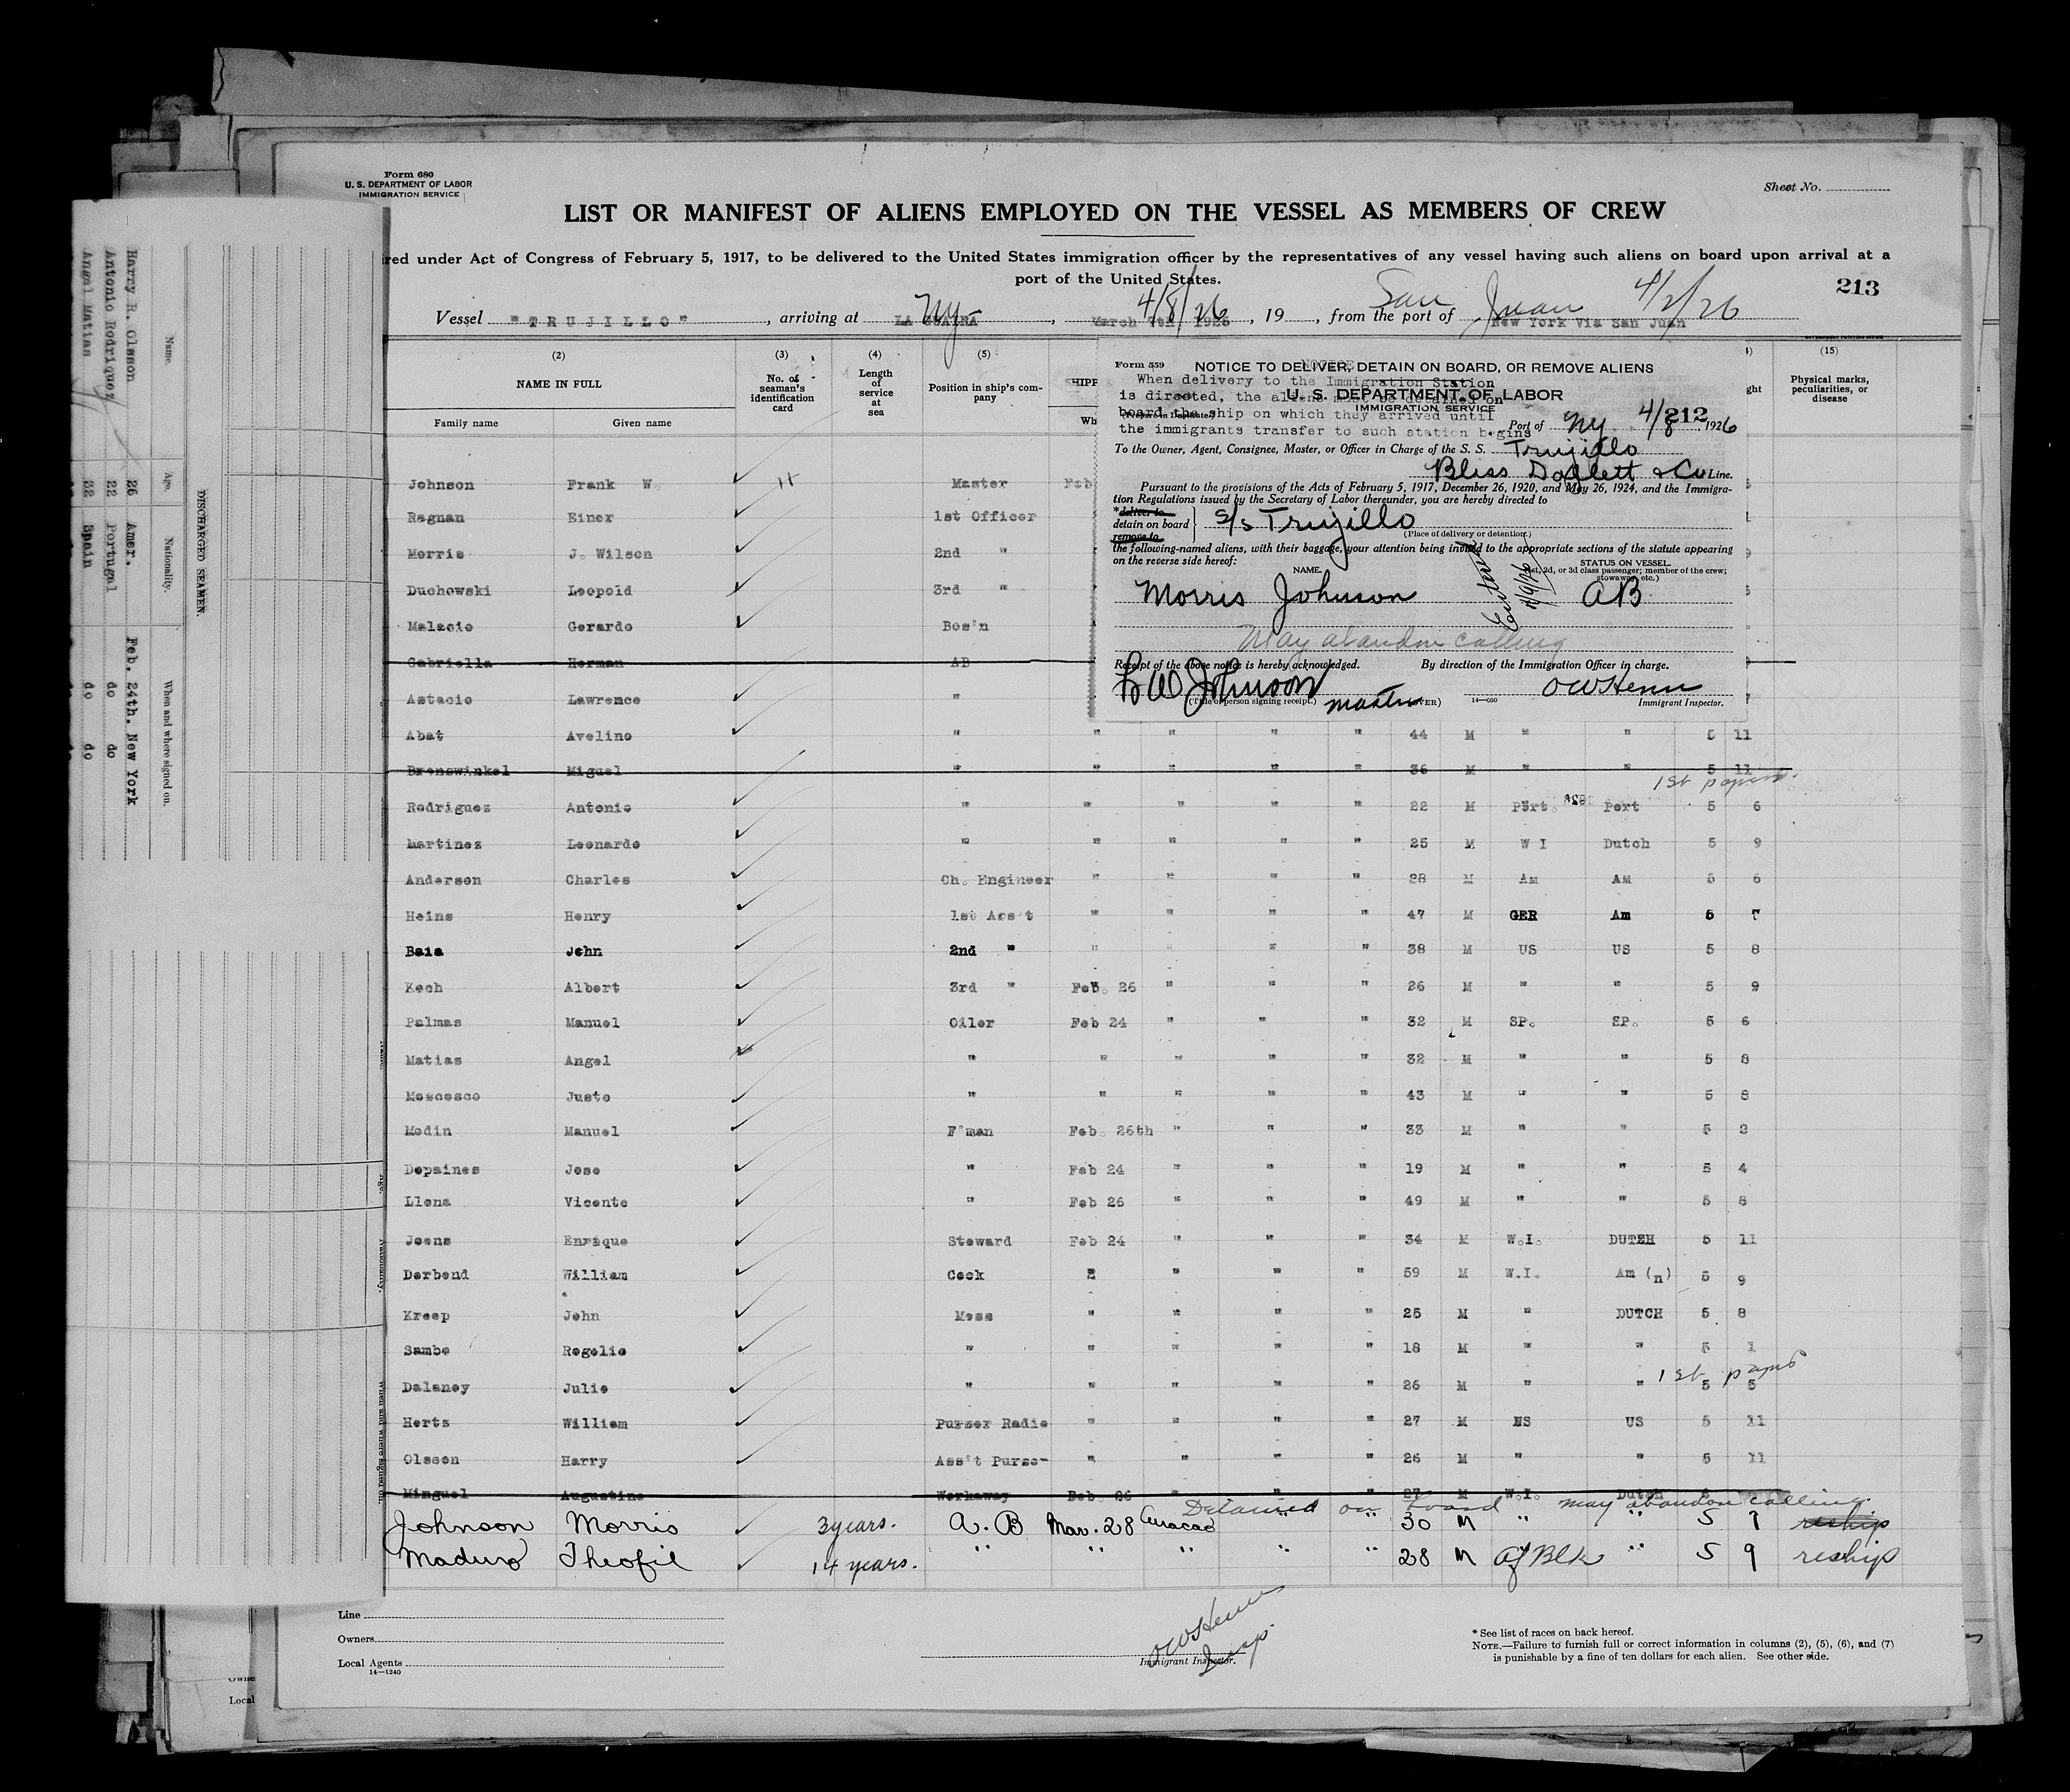 Form 680
U. S. DEPARTMENT OF LABOR
IMMIGRATION SERVICE
Sheet No.
LIST OR MANIFEST OF ALIENS EMPLOYED ON THE VESSEL AS MEMBERS OF CREW
red under Act of Congress of February 5, 1917, to be delivered to the United States immigration officer by the representatives of any vessel having such aliens on board upon arrival at a
port of the United States.
213
Vessel "TRUJILLO", arriving at LA GUAIRA NY, March 7th 1926 4/8/26, 19, from the port of New York Via San Juan San Juan 4/2/26
(2) (3) (4) (5) (15)
NAME IN FULL
Family name Given name
No. of seaman's identification card
Length of service at sea
Position in ship's company
SHIPP
Wh
ght
Physical marks, peculiarities, or disease
Form 559
NOTICE TO DELIVER, DETAIN ON BOARD, OR REMOVE ALIENS
NOTICE
When delivery to the Immigration Station
is directed, the aliens must be detained on
board the ship on which they arrived until
the immigrants transfer to such station begins
U. S. DEPARTMENT OF LABOR
IMMIGRATION SERVICE
212
Port of NY 4/8, 1926
To the Owner, Agent, Consignee, Master, or Officer in Charge of the S. S. Trujillo
Bliss Dallett & Co Line.
Pursuant to the provisions of the Acts of February 5, 1917, December 26, 1920, and May 26, 1924, and the Immigra-
tion Regulations issued by the Secretary of Labor thereunder, you are hereby directed to
*deliver to
detain on board S/S Trujillo
remove to
(Place of delivery or detention.)
the following-named aliens, with their baggage, your attention being invited to the appropriate sections of the statute appearing
on the reverse side hereof:
NAME.
STATUS ON VESSEL
(1st, 2d, or 3d class passenger; member of the crew; stowaway, etc.)
Morris Johnson 4/9/26 AB
May abandon calling
Receipt of the above notice is hereby acknowledged. By direction of the Immigration Officer in charge.
F W Johnson master O W Henn
(Title of person signing receipt.) (OVER) 14—660 Immigrant Inspector.
Johnson Frank W. Master Feb
Ragnan Einer 1st Officer
Morris J. Wilson 2nd "
Duchowski Leopold 3rd "
Malacio Gerardo Bos'n
Gabriella Herman AB
Astacio Lawrence "
Abat Avelino " " " " " 44 M " " 5 11
Brenswinkel Miguel " " " " " 36 M " " 5 11
1st papers.
Rodriguez Antonio " " " " " 22 M Port. Port 5 6
Martinez Leonardo " " " " " 25 M W I Dutch 5 9
Anderson Charles Ch. Engineer " " " " 28 M AM AM 5 6
Heins Henry 1st Ass't " " " " 47 M GER Am 5 7
Baia John 2nd " " " " " 38 M US US 5 8
Kech Albert 3rd " Feb. 26 " " " 26 M " " 5 9
Palmas Manuel Oiler Feb 24 " " " 32 M SP. SP. 5 6
Matias Angel " " " " " 32 M " " 5 8
Moscosco Justo " " " " " 43 M " " 5 8
Modin Manuel F'man Feb. 26th " " " 33 M " " 5
Depaines Jose " Feb 24 " " " 19 M " " 5 4
Llona Vicente " Feb 26 " " " 49 M " " 5 8
Joens Enrique Steward Feb 24 " " " 34 M W.I. DUTCH 5 11
Derbend William Cook " " " " 59 M W.I. Am (n) 5 9
Kroep John Mess " " " " 25 M " DUTCH 5 8
Sambo Rogelio " " " " " 18 M " " 5 1
Dalaney Julio " " " " " 26 M " " 5 5
1st papers
Hertz William Purser Radio " " " " 27 M US US 5 11
Olsson Harry Ass't Purser " " " " 26 M " " 5 11
Minguel Augustine Workaway Feb 26 " " " 27 M W.I. Dutch 5
Detained on board may abandon calling.
Johnson Morris 3 years. A. B Mar. 28 Curacao " " 30 M " " 5 9 reship
Maduro Theofil 14 years. " " " " " 28 M Af Blk " 5 9 reship
Line
Owners
Local Agents
14—1240
O W Henn
Insp.
Immigrant Inspector.
* See list of races on back hereof.
NOTE.—Failure to furnish full or correct information in columns (2), (5), (6), and (7)
is punishable by a fine of ten dollars for each alien. See other side.
DISCHARGED SEAMEN.
Name. Age. Nationality. When and where signed on.
Harry R. Olsson 26 Amer. Feb. 24th. New York
Antonio Rodriguez 22 Portugal do do
Angel Matias 32 Spain do do
Local